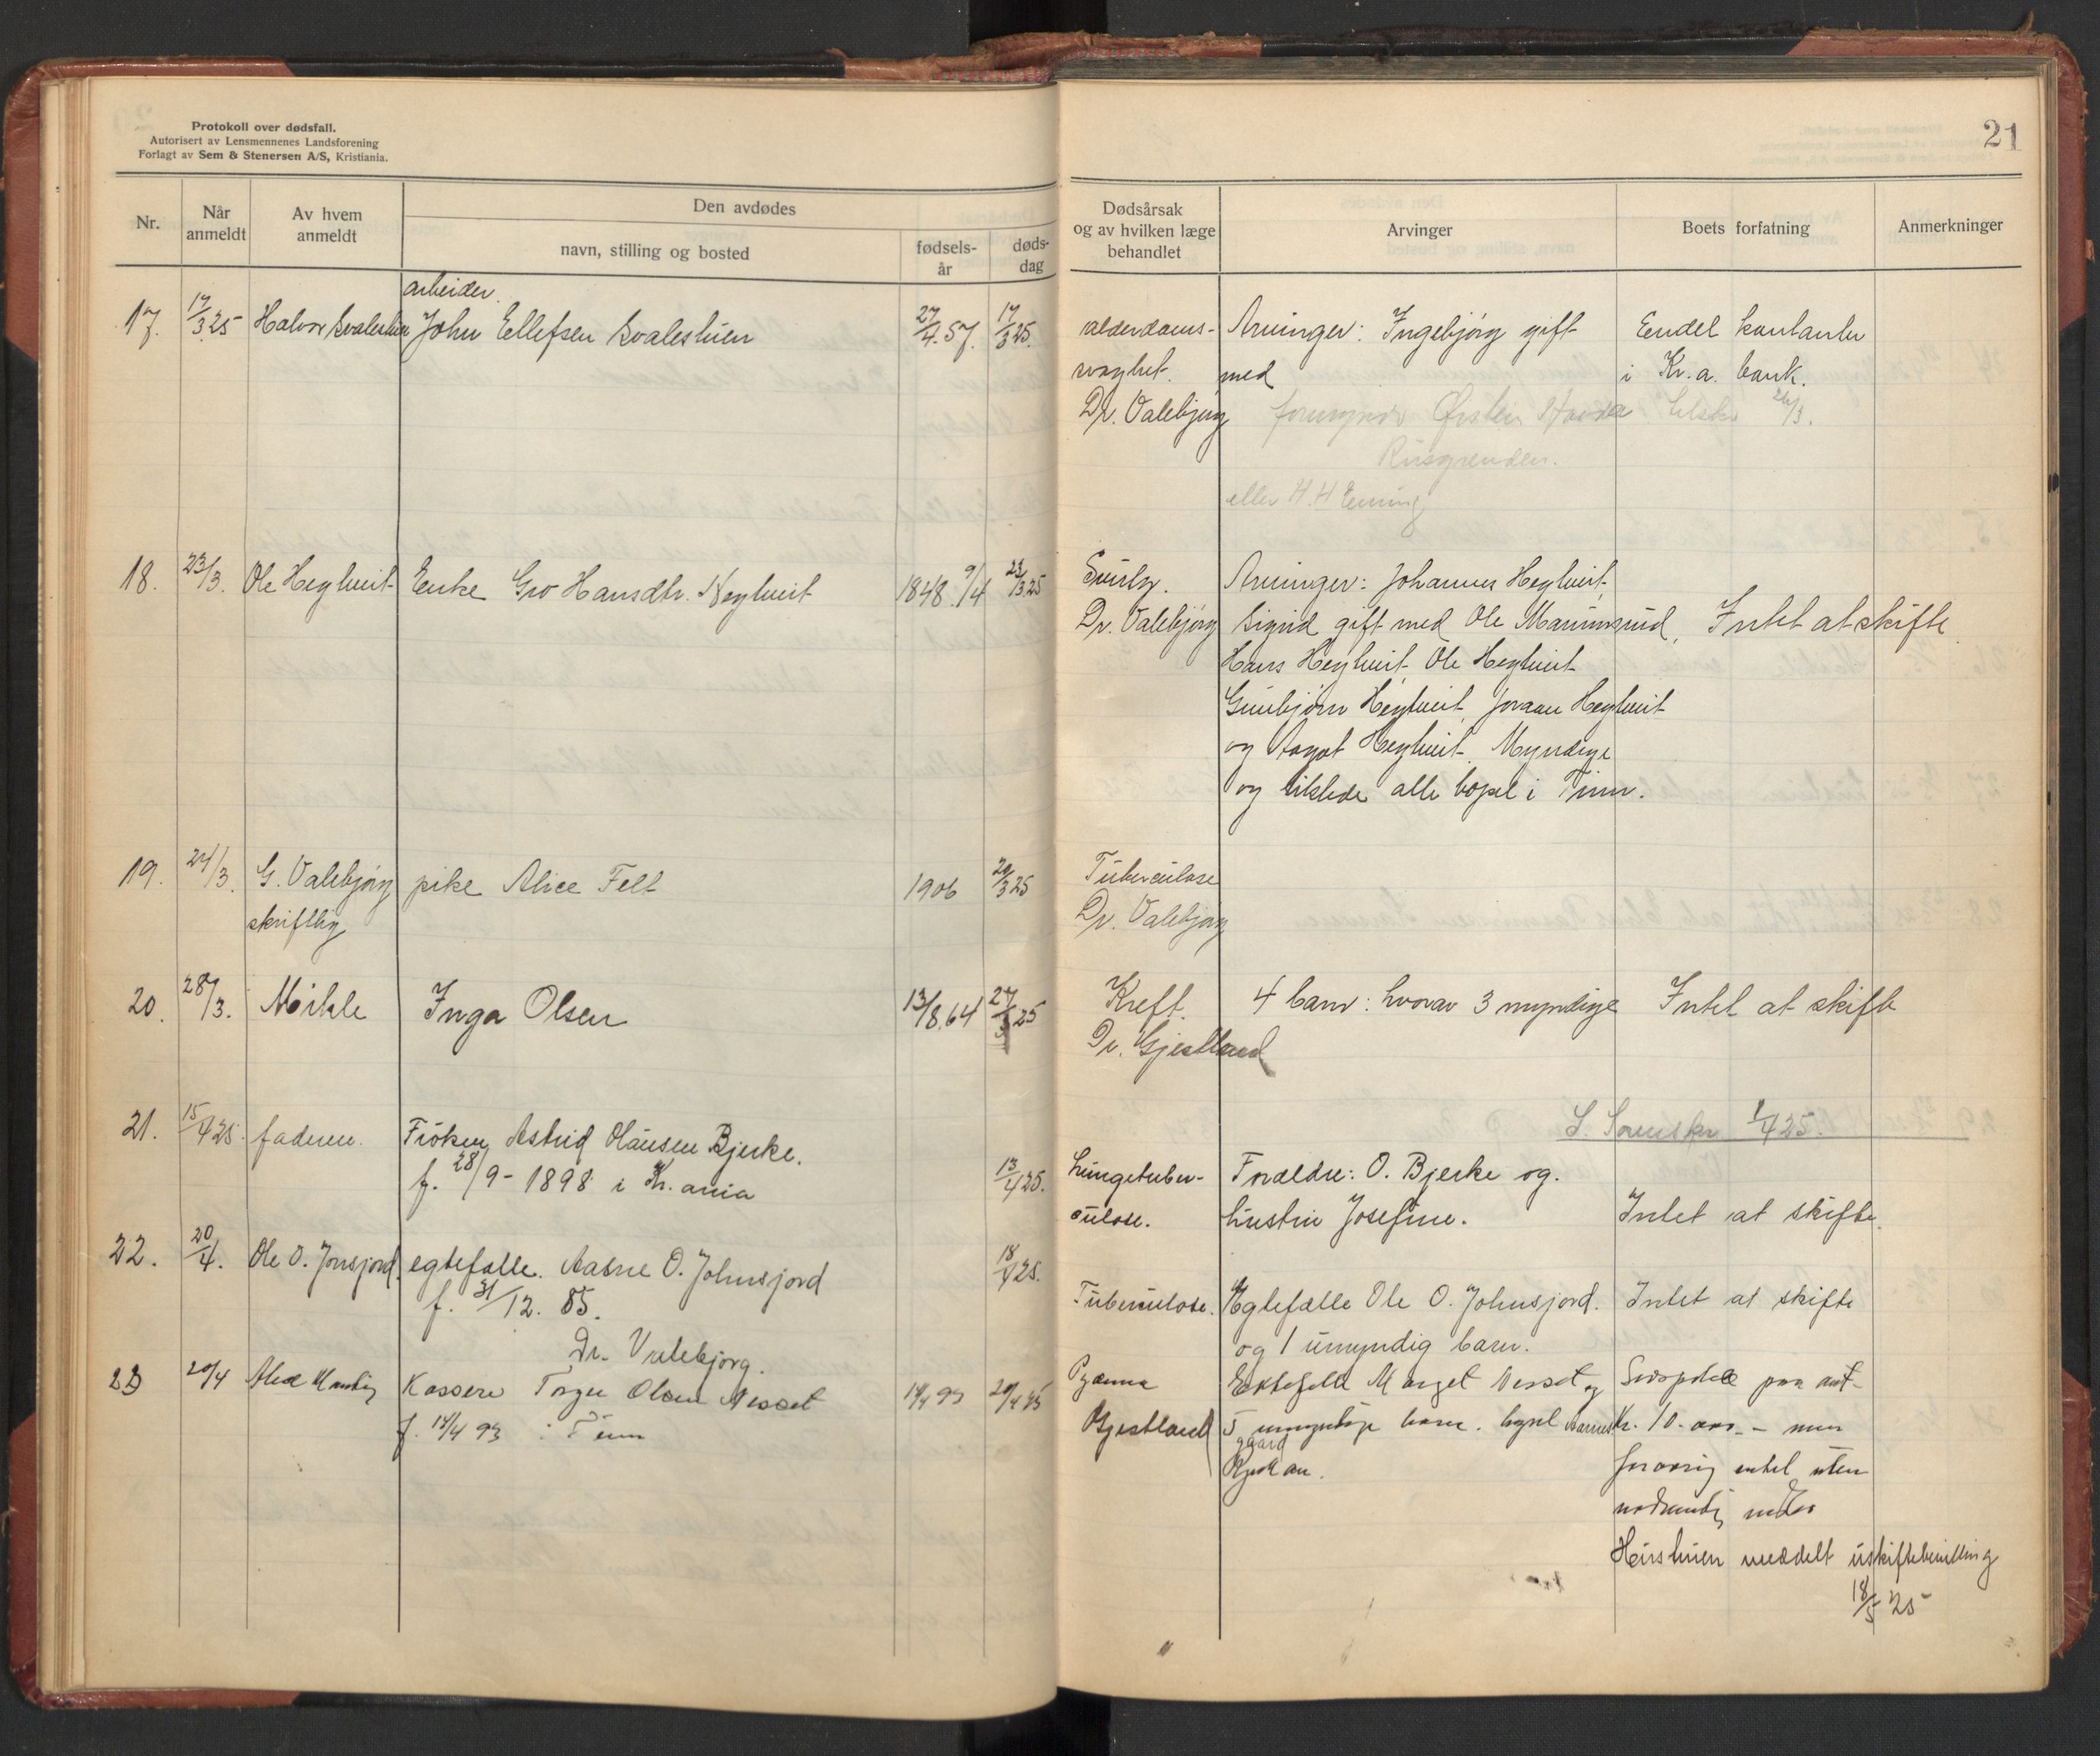 Protokoll over dødsfall.
Autorisert av Lensmennenes Landsforening
Forlagt av Sem & Stenersen A/S, Kristiania.
Nr.
Når anmeldt
Av hvem anmeldt
Den avdødes
navn, stilling og bosted
fødsels-år
døds-dag
arbeider
17. 17/3 25 Halvor Svaleshien John Ellefsen Svaleshien 27/4.57. 17/3 25.
18. 23/3. Ole Heghveit Enke Gro Hansdtr. Heghveit 1848 9/4 23/3 25
19. 24/3. G. Valebjørg pike Alice Felt 1906 20/3 25
skriftlig
20. 28/3. Mikle Inga Olsen 13/8.64 27/3 25
21. 15/4 25. faderen. Frøken Astrid Olausen Bjerke.
f. 28/9 - 1898 i Kr.ania 13/4 25.
22. 20/4. Ole O. Jonsjord. egtefælle. Aasne O. Johnsjord 18/4 25.
f. 31/12. 85.
Dr. Valebjørg.
23 20/4 Kasserer Torger Olsen Nesset 14/4 93 20/4 25
f. 14/4 93 i Tinn
21
Dødsårsak og av hvilken læge behandlet
Arvinger
Boets forfatning
Anmerkninger
alderdoms- Arvinger: Ingebjørg gift Eendel kontanter
svaghet. med i Kr.a. bank.
Dr. Valebjørg Øistein 26/3.
Riisgrenden.
eller H. H
Dr. Valebjørg Arvinger: Johannes Heghveit,
Sigrid gift med Ole Marumsrud, Intet at skifte.
Hans Heghveit Ole Heghveit
Gunbjørn Heghveit, Joraan Heghveit
og Aagot Heghveit. Myndige
og tilstede alle bopel i Tinn.
Tuberculose
Dr. Valebjørg
Kreft. 4 barn: hvorav 3 myndige Intet at skifte
Dr. Gjestland
1/4 25.
Lungetuber- Forældre: O. Bjerke og.
culose. hustru Josefine. Intet at skifte.
Tuberculose. Egtefælle Ole O. Johnsjord. Intet at skifte
og 1 umyndig barn.
Pyæmia Ektefelle Marget Nesset og
Gjestland 5 umyndige barn. bopel Kr. 10.000.- men
gaard
Rjukan. forøvrig intet uten
nødvendig indbo
Hustruen meddelt uskiftebevilling
18/5 25